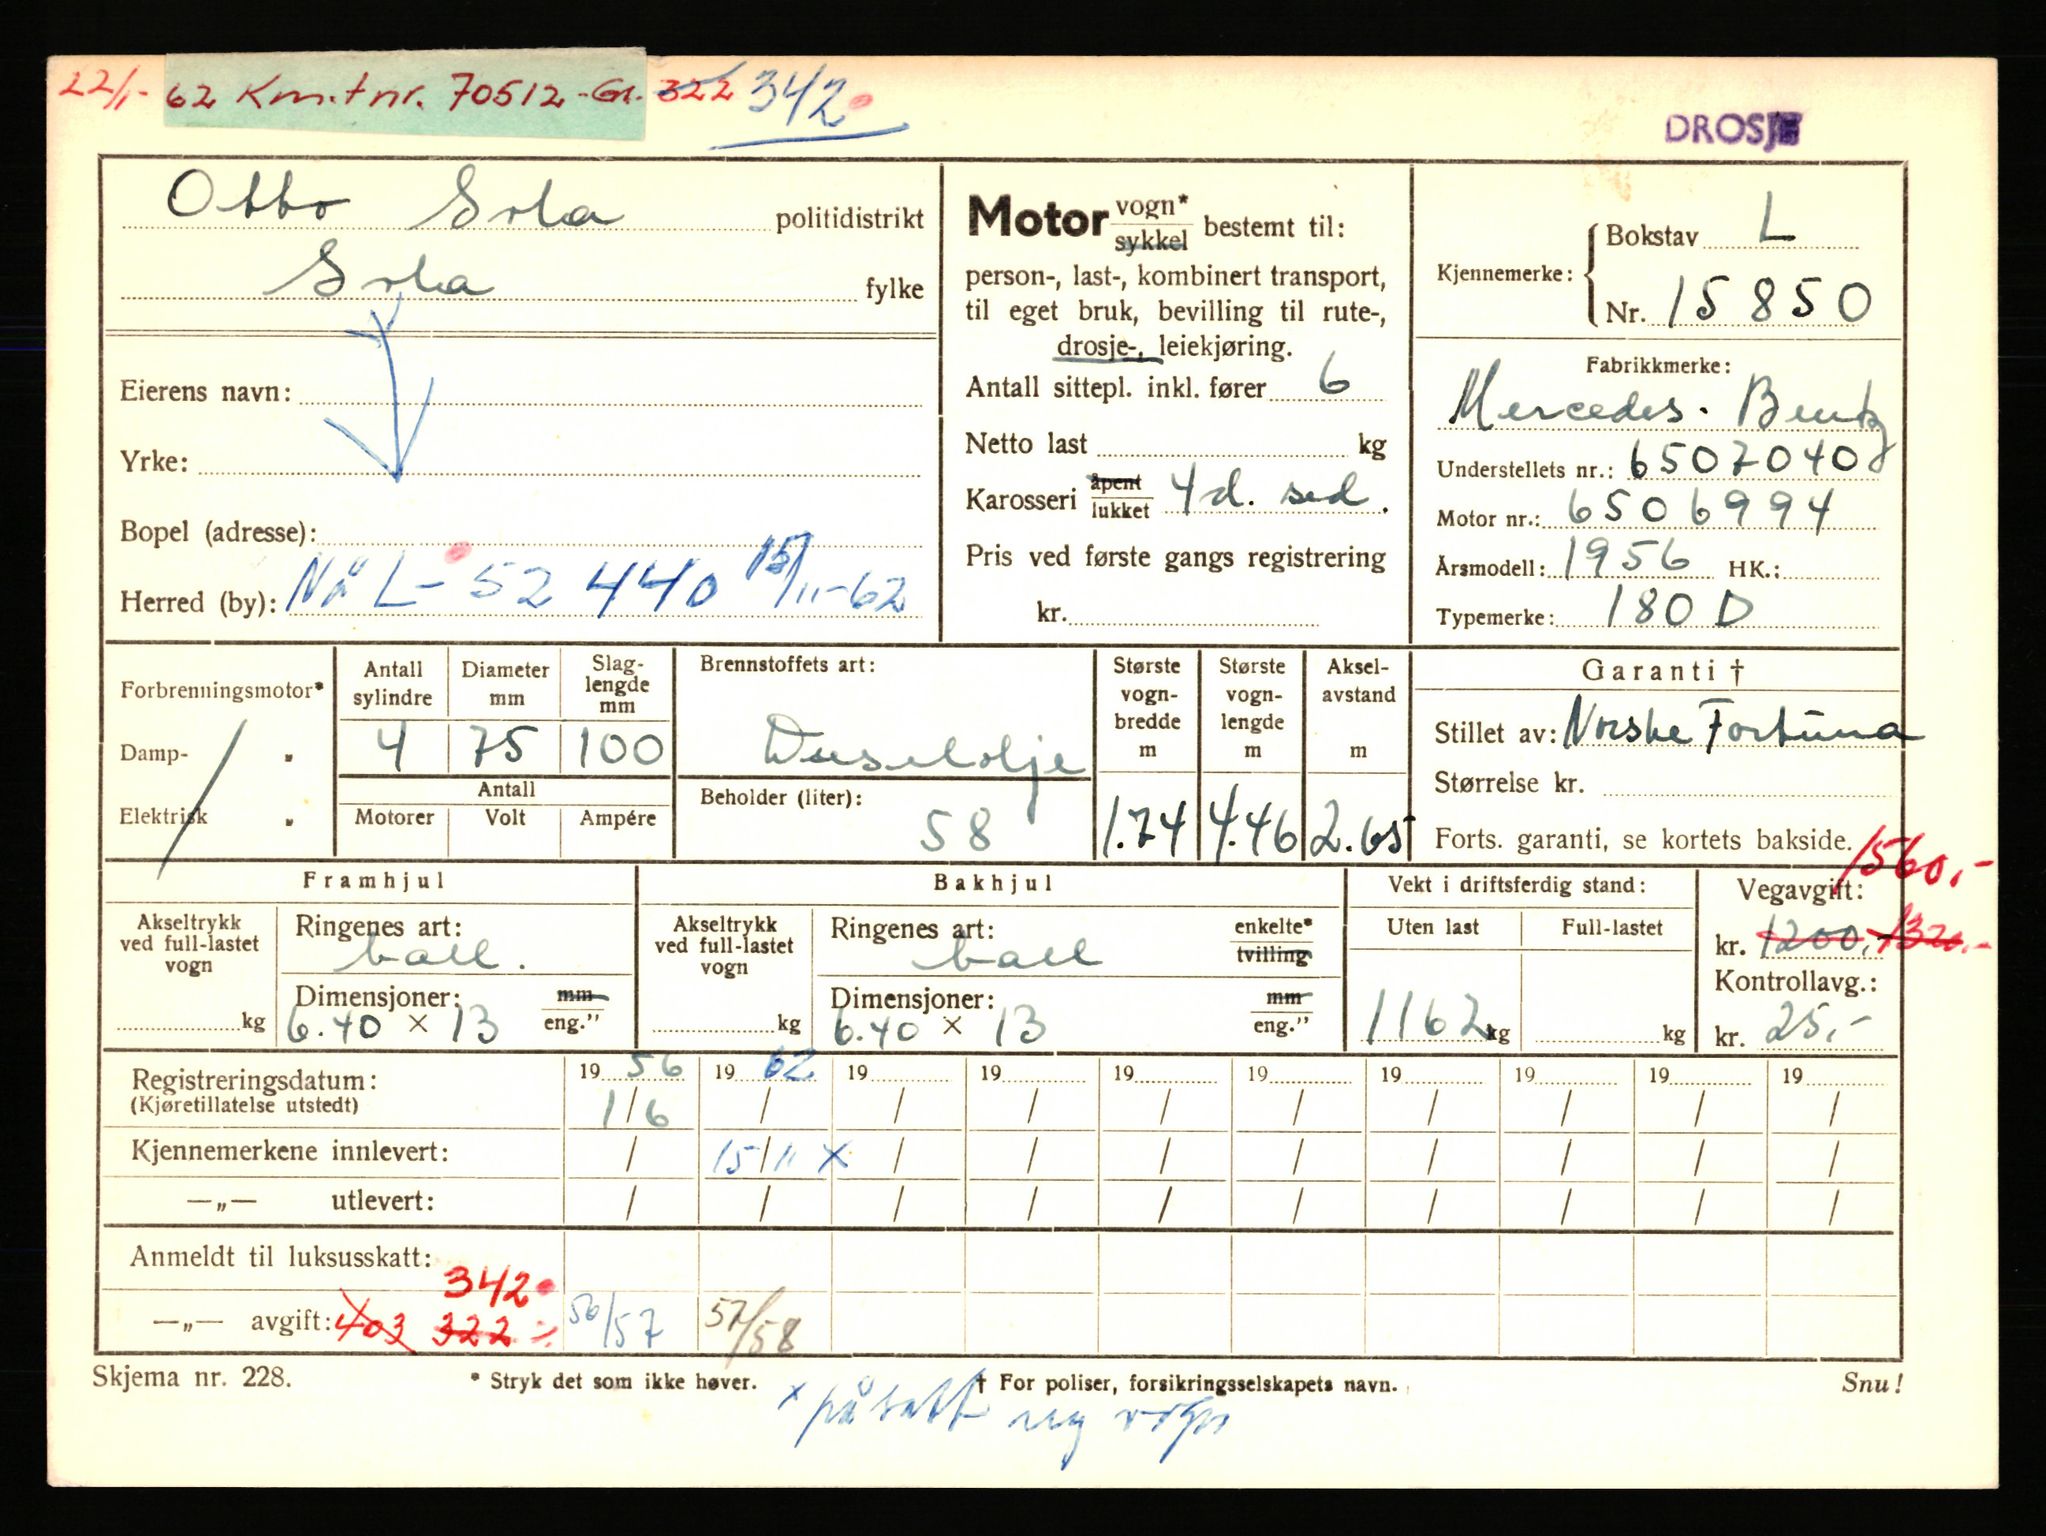 22/1-62 Km.tnr. 70512-Gr. 322 342
DROSJE
Otto Sola politidistrikt
Sola fylke
Eierens navn:
Yrke:
Bopel (adresse):
Herred (by): Nå L-52 440 15/11-62
Motor vogn* sykkel bestemt til:
person-, last-, kombinert transport,
til eget bruk, bevilling til rute-,
drosje-, leiekjøring.
Antall sittepl. inkl. fører 6
Netto last kg
Karosseri åpent lukket 4d. sed.
Pris ved første gangs registrering
kr.
Kjennemerke: Bokstav L
Nr. 15850
Fabrikkmerke:
Mercedes. Bentz
Understellets nr.: 6507040
Motor nr.: 6506994
Årsmodell: 1956 HK.:
Typemerke: 180 D
Forbrenningsmotor*
Damp- "
Elektrisk "
Antall sylindre Diameter mm Slag-lengde mm
4 75 100
Antall
Motorer Volt Ampére
Brennstoffets art:
Dieselolje
Beholder (liter):
58
Største vogn-bredde m 1.74
Største vogn-lengde m 4.46
Aksel-avstand m 2.65
Garanti †
Stillet av: Norske Fortuna
Størrelse kr.
Forts. garanti, se kortets bakside.
Framhjul
Akseltrykk ved full-lastet vogn kg
Ringenes art:
ball.
Dimensjoner: mm eng."
6.40 × 13
Bakhjul
Akseltrykk ved full-lastet vogn kg
Ringenes art: enkelte* tvilling
ball
Dimensjoner: mm eng."
6.40 × 13
Vekt i driftsferdig stand:
Uten last Full-lastet
1162 kg kg
Vegavgift: 1560,-
kr. 1200,- 1320,-
Kontrollavg.:
kr. 25,-
Registreringsdatum: 19 56 19 62 19 19 19 19 19 19 19 19
(Kjøretillatelse utstedt) 1/6 / / / / / / / / /
Kjennemerkene innlevert: / 15/11 x / / / / / / / /
—„— utlevert: / / / / / / / / / /
Anmeldt til luksusskatt:
342
—„— avgift: 403 322 56/57 57/58
Skjema nr. 228. * Stryk det som ikke høver. † For poliser, forsikringsselskapets navn. Snu!
x påsatt ny vogn